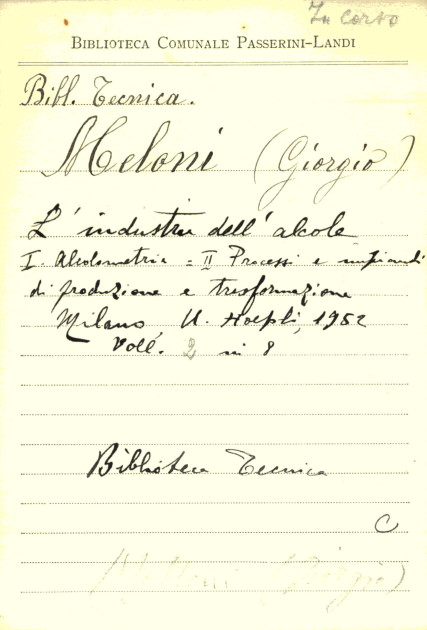 In corso
BIBLIOTECA COMUNALE PASSERINI-LANDI
Bibl. Tecnica.
Meloni (Giorgio)
L'industria dell'alcole
I. Alcolometria = II Processi e impianti
di produzione e trasformazione
Milano, U. Hoepli, 1952
Voll. 2 in 8
Biblioteca Tecnica
C
(Giorgio)